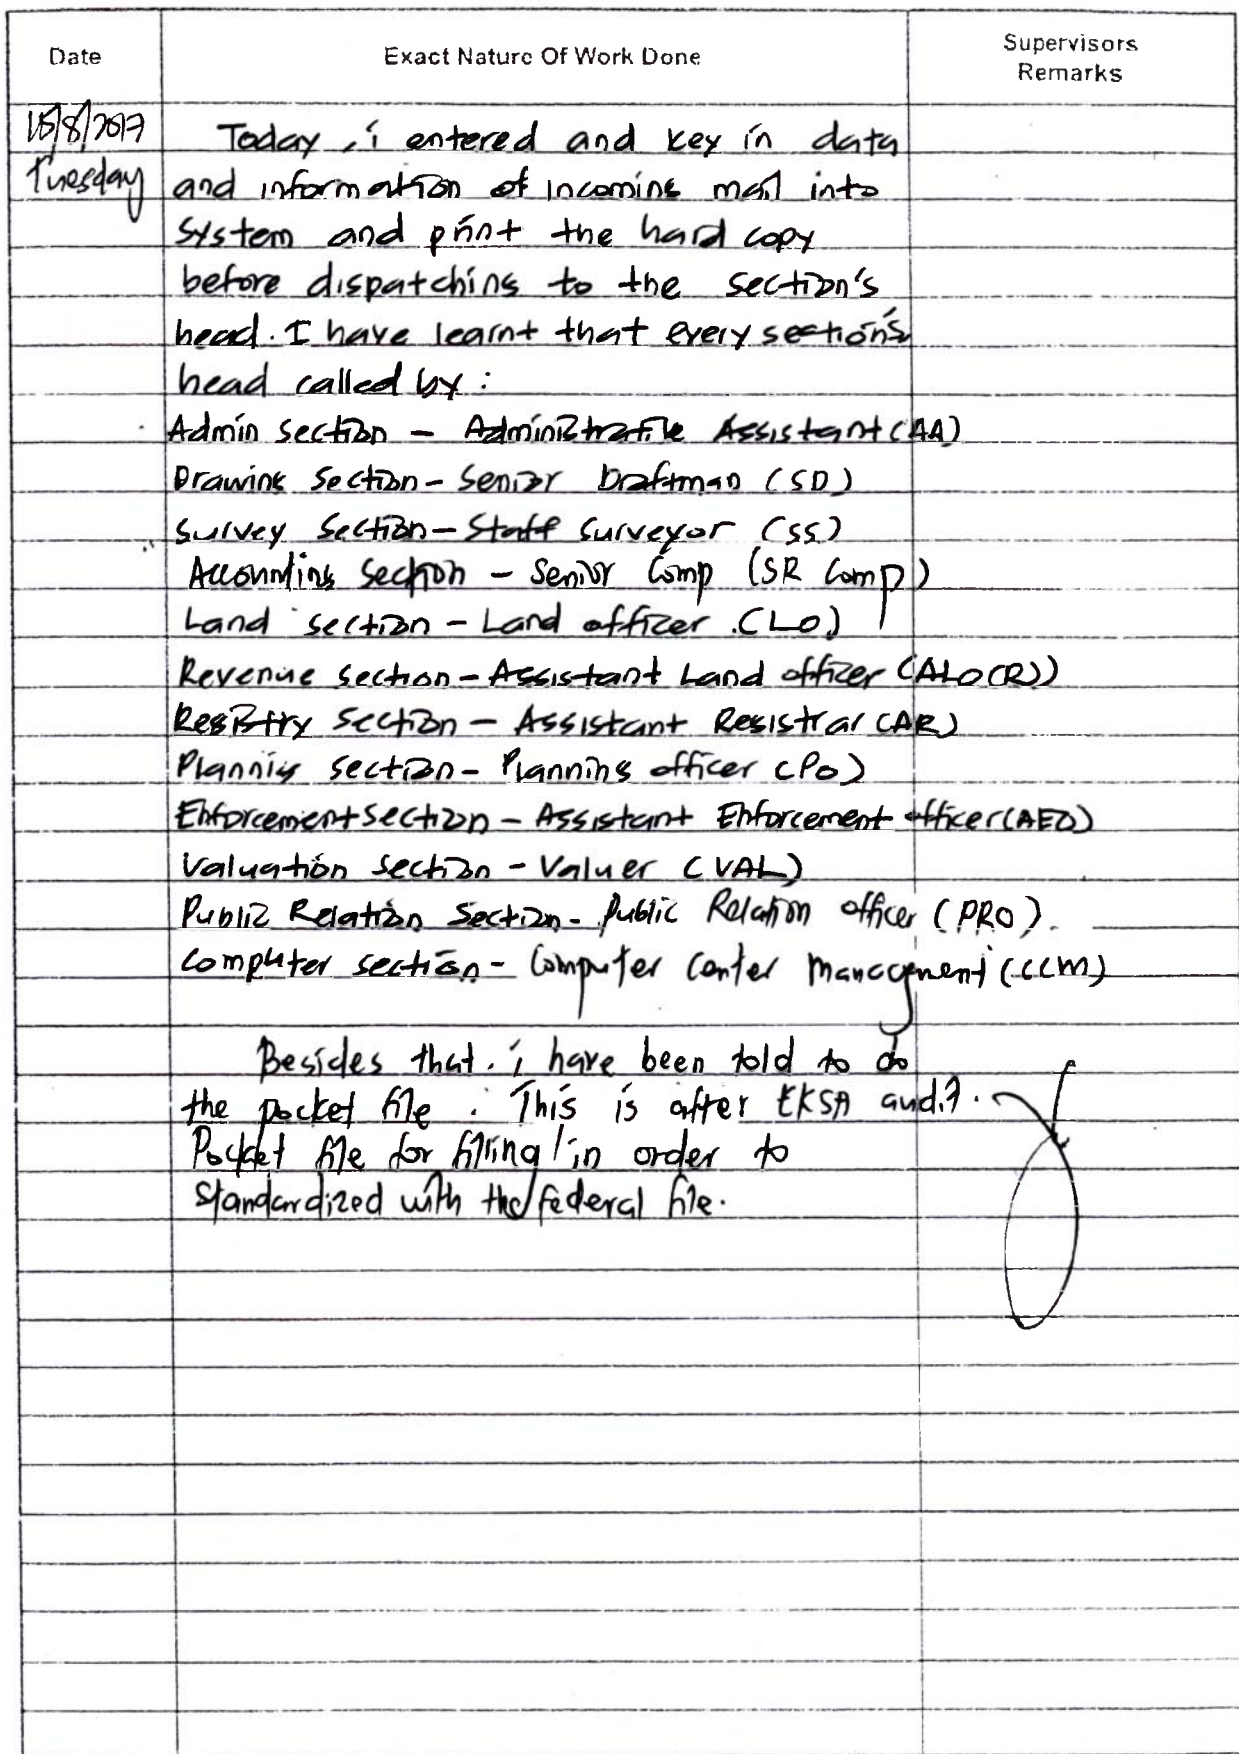 Date
Exact Nature Of Work Done
Supervisors
Remarks
15/8/2017
Tuesday
Today, i entered and key in data
and information of incoming mail into
system and print the hard copy
before dispatching to the section's
head. I have learnt that every section's
head called by :
Admin section - Administrative Assistant (AA)
Drawing Section - Senior Draftman (SD)
Survey Section - Staff Surveyor (SS)
Accounting section - Senior Comp (SR Comp)
Land section - Land officer (LO)
Revenue section - Assistant Land officer (ALO(R))
Registry section - Assistant Registrar (AR)
Planning section - Planning officer (PO)
Enforcement section - Assistant Enforcement officer (AEO)
Valuation section - Valuer (VAL)
Public Relation Section - Public Relation officer (PRO).
Computer section - Computer Center Management (CCM)
Besides that. i have been told to do
the pocket file. This is after EKSA audit.
Pocket file for filing in order to
standardized with the federal file.